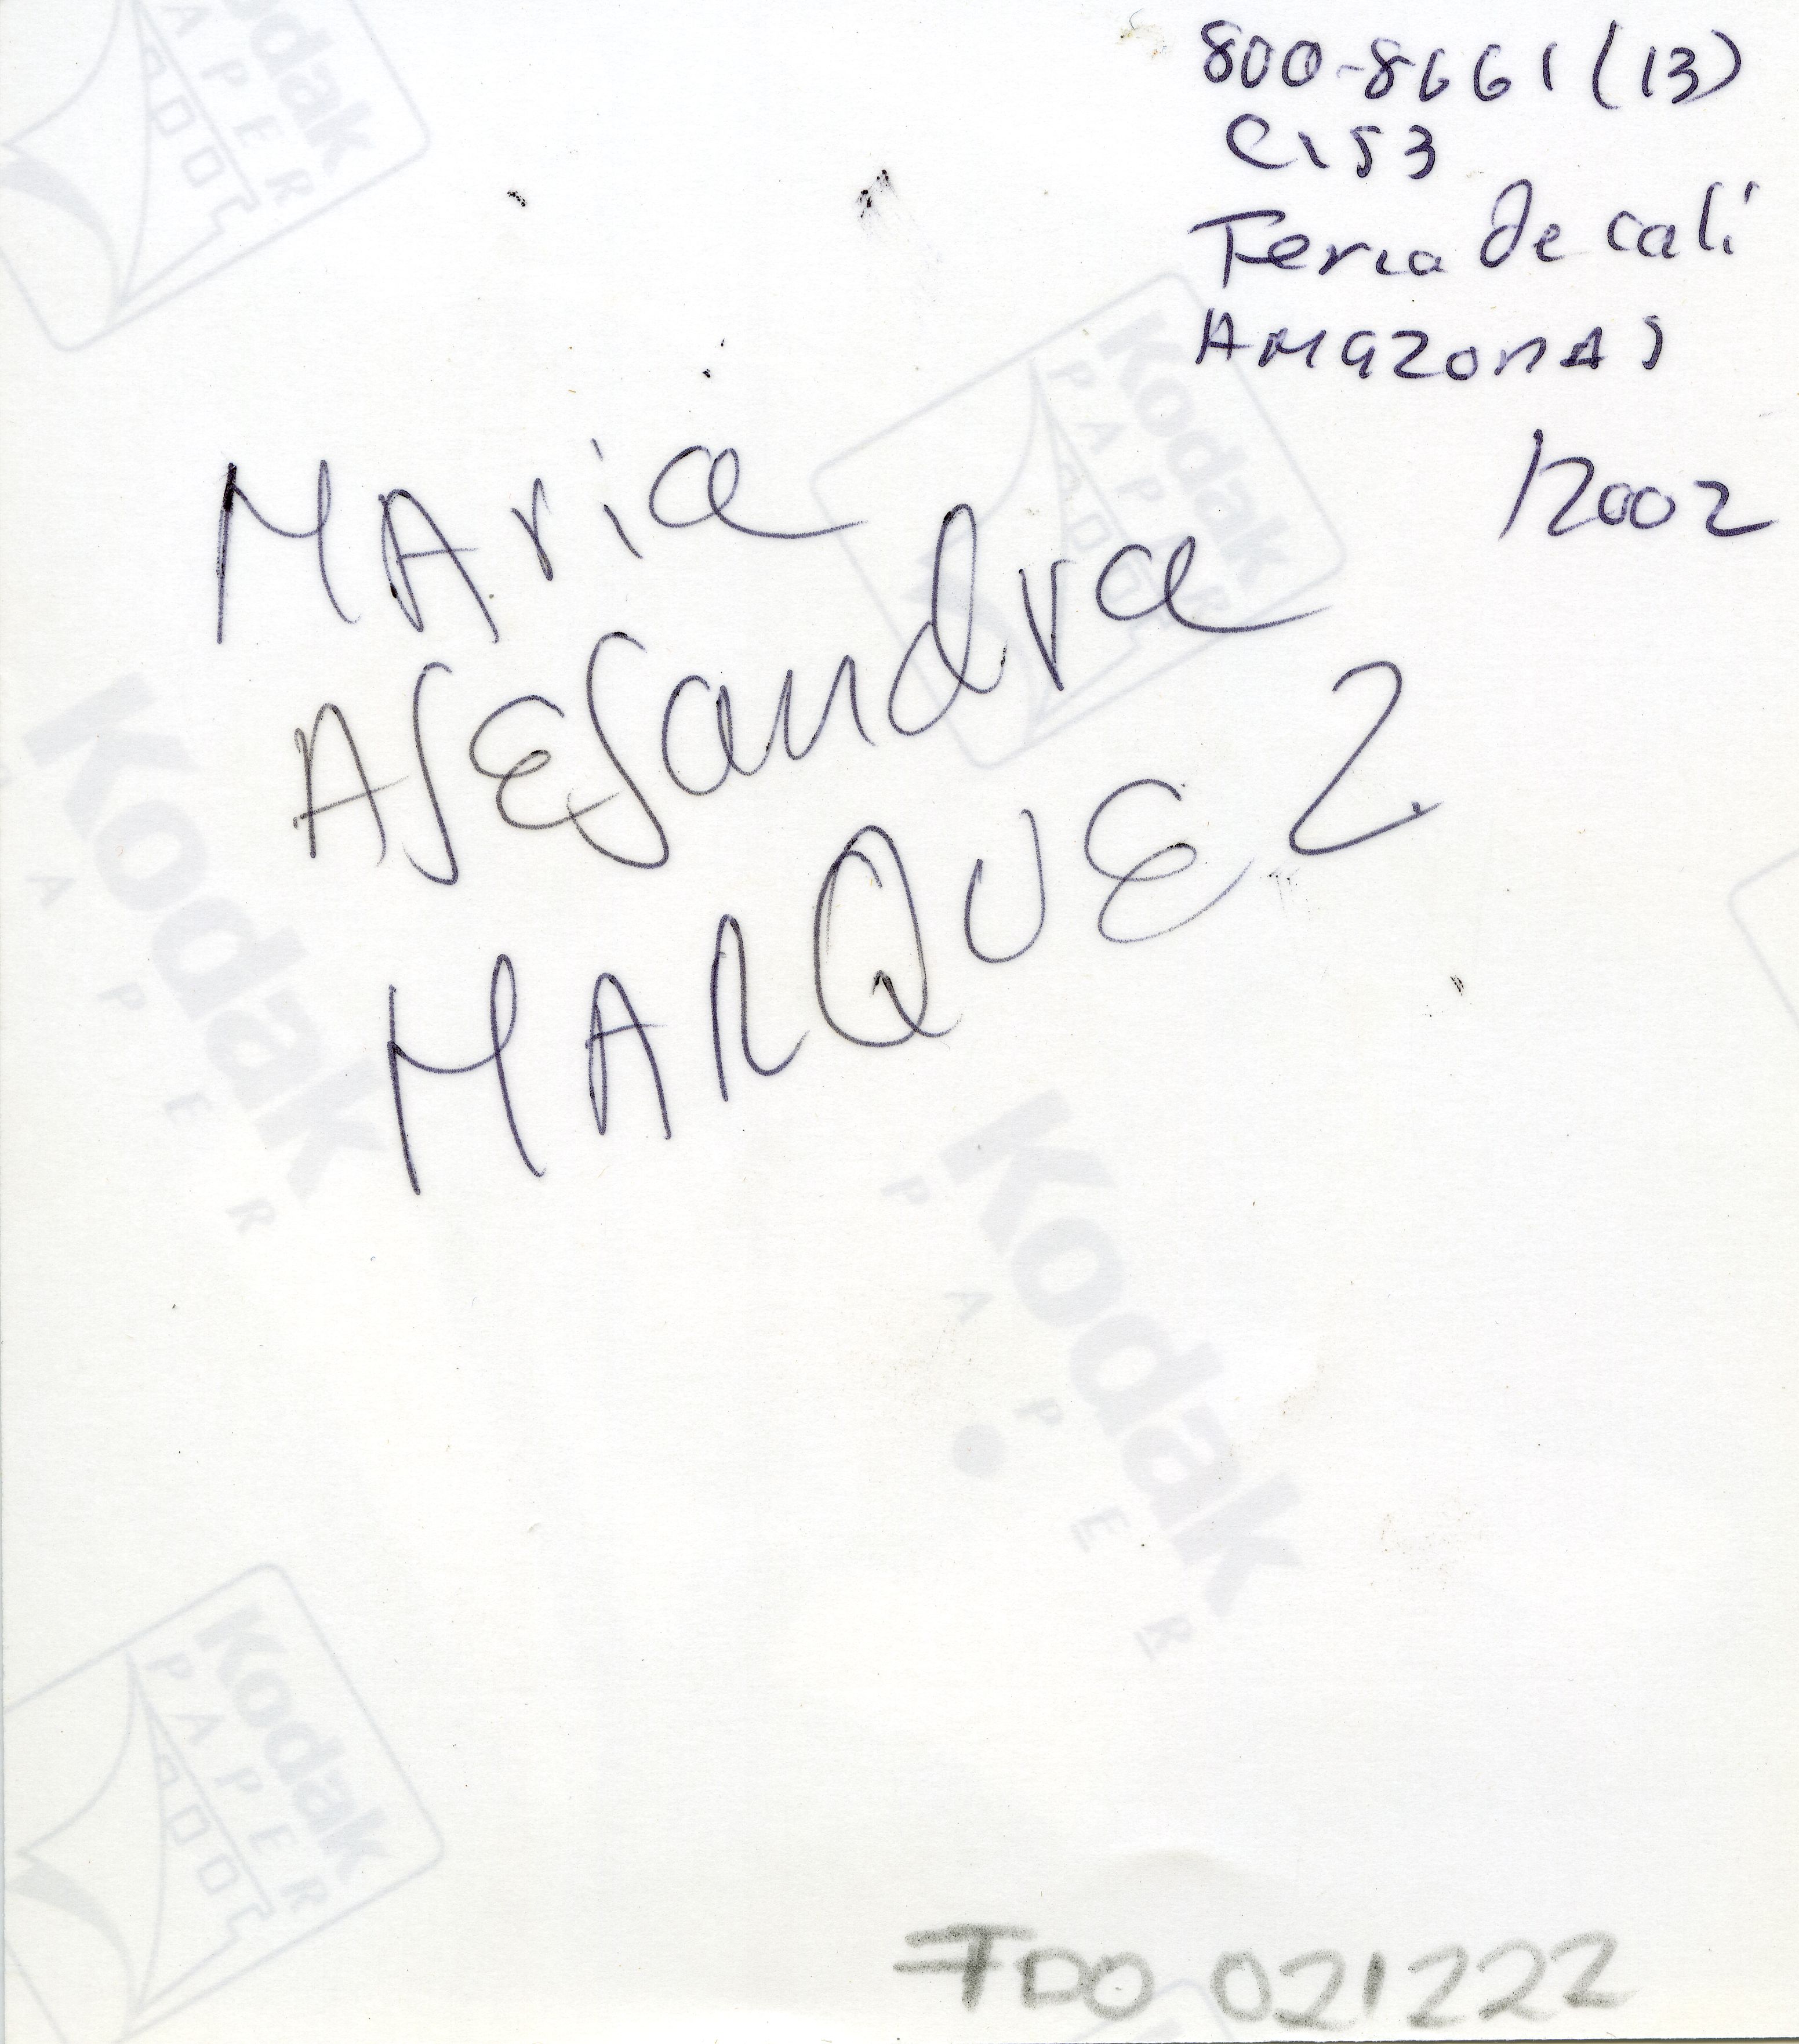 800-8661 (13)
C153
Feria de cali
AMAZONAS
/2002
MAria
AlEjandra
MARQUEZ
FDO 021222
Kodak
PAPER
Kodak
PAPER
Kodak
PAPER
Kodak
PAPER
Kodak
PAPER